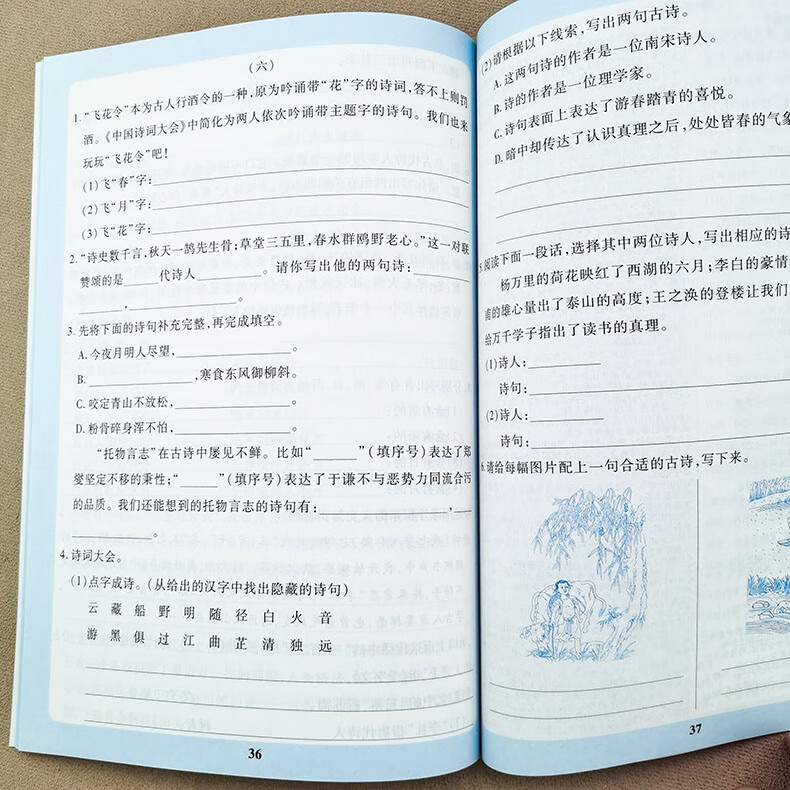 (六)
1.“飞花令”本为古人行酒令的一种,原为吟诵带“花”字的诗词,答不上则罚
酒。《中国诗词大会》中简化为两人依次吟诵带主题字的诗句。我们也来
玩玩“飞花令”吧!
(1)飞“春”字:
(2)飞“月”字:
(3)飞“花”字:
2.“诗史数千言,秋天一鹄先生骨;草堂三五里,春水群鸥野老心。”这一对联
赞颂的是____代诗人________。请你写出他的两句诗:________
________,____________。
3.先将下面的诗句补充完整,再完成填空。
A.今夜月明人尽望,____________。
B.____________,寒食东风御柳斜。
C.咬定青山不放松,____________。
D.粉骨碎身浑不怕,____________。
“托物言志”在古诗中屡见不鲜。比如“____”(填序号)表达了郑
燮坚定不移的秉性;“____”(填序号)表达了于谦不与恶势力同流合污
的品质。我们还能想到的托物言志的诗句有:____________,
____________。
4.诗词大会。
(1)点字成诗。(从给出的汉字中找出隐藏的诗句)
云 藏 船 野 明 随 径 白 火 音
游 黑 俱 过 江 曲 芷 清 独 远
36
(2)请根据以下线索,写出两句古诗。
A.这两句诗的作者是一位南宋诗人。
B.诗的作者是一位理学家。
C.诗句表面上表达了游春踏青的喜悦。
D.暗中却传达了认识真理之后,处处皆春的气象
阅读下面一段话,选择其中两位诗人,写出相应的诗
杨万里的荷花映红了西湖的六月;李白的豪情
甫的雄心量出了泰山的高度;王之涣的登楼让我们
给万千学子指出了读书的真理。
(1)诗人:__________
诗句:
(2)诗人:__________
诗句:
6.请给每幅图片配上一句合适的古诗,写下来。
37